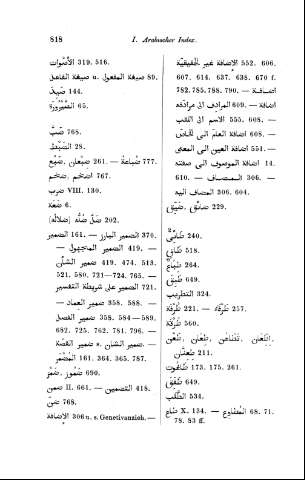 818
I. Arabischer Index.
319. 516. الأصوات
89. صيغة المفعول u. صيغة الفاعل
144. صيد
65. الصيرورة
768. ضب
28. الضبط
777. ضباعة — 261. ضبعان, ضبع
767. ضخم, ضخم
VIII. 130. ضرب
6. ضعة
202. ضل ضله (ضلاله)
370. الضمير البارز — 161. الضمير
— 419. الضمير المجهول —
419. 474. 513. ضمير الشأن
521. 580. 721—724. 765. —
721. الضمير على شريطة التفسير
— 358. 588. ضمير العماد —
358. 584—589. ضمير الفصل
682. 725. 762. 781. 796. —
ضمير القصة s. ضمير الشأن —
161. 364. 365. 787. المضمر
690. ضمور, ضمز
II. 661. — 418. التضمين — ضمن
768. ضن
306 u. s. Genetivanzieh. — الاضافة
552. 606. الاضافة غير الحقيقية
607. 614. 637. 638. 670 f.
782. 785. 788. 790. — اضافة
609. — المرادف الى مرادفه — اضافة
555. 608. — الاسم الى اللقب
608. اضافة العام الى الخاص —
551. اضافة العين الى المعنى —
14. اضافة الموصوف الى صفته
610. — المضاف — 306. —
306. 604. المضاف اليه
229. ضائق, ضيق
240. طائى
518. طبان
264. طباخ
649. طبق
324. التطريب
221. — طرفاء — 257. طرفة
560. طرقة
اطعان, تطاعن, طعان, طعن
211. طعنن
173. 175. 261. طاغوت
649. طفق
534. الطلب
X. 134. — المطاوع — 68. 71. طاع
78. 83 ff.